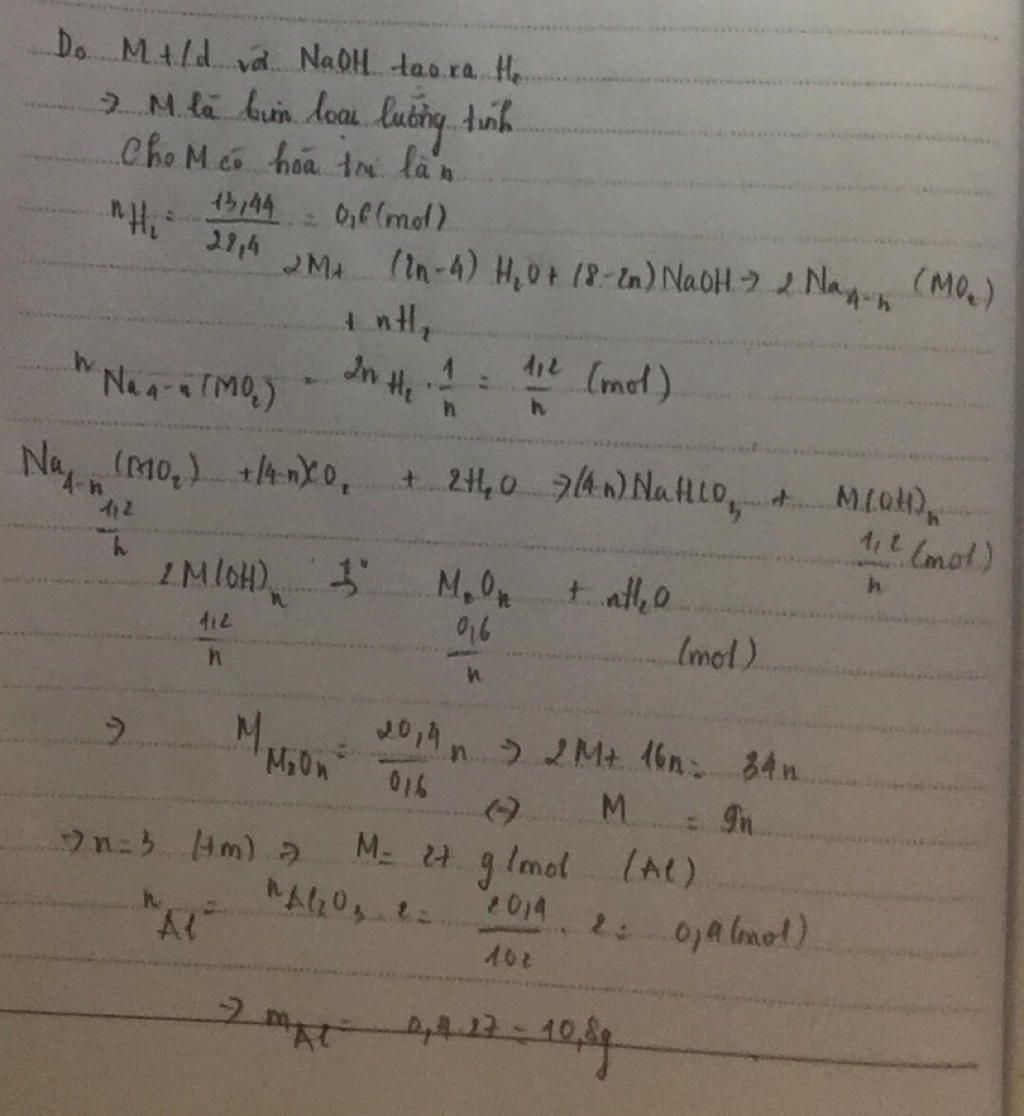 Do M t/d với NaOH tạo ra H₂
→ M là kim loại lưỡng tính
Cho M có hoá trị là n
nH₂ = 13,44/22,4 = 0,6 (mol)
2M + (2n-4) H₂O + (8-2n) NaOH → 2 Na₄₋ₙ (MO₂)
+ nH₂
n Na₄₋ₙ(MO₂) = 2n H₂ . 1/n = 1,2/n (mol)
Na₄₋ₙ (MO₂) + (4-n)CO₂ + 2H₂O → (4-n) NaHCO₃ + M(OH)ₙ
1,2/n 1,2/n (mol)
2M(OH)ₙ t°→ M₂Oₙ + nH₂O
1,2/n 0,6/n (mol)
→ M M₂Oₙ = 20,4/0,6 n → 2M + 16n = 34n
↔ M = 9n
→ n = 3 (tm) → M = 27 g/mol (Al)
nAl = nAl₂O₃ . 2 = 20,4/102 . 2 = 0,4 (mol)
→ mAl = 0,4.27 = 10,8g